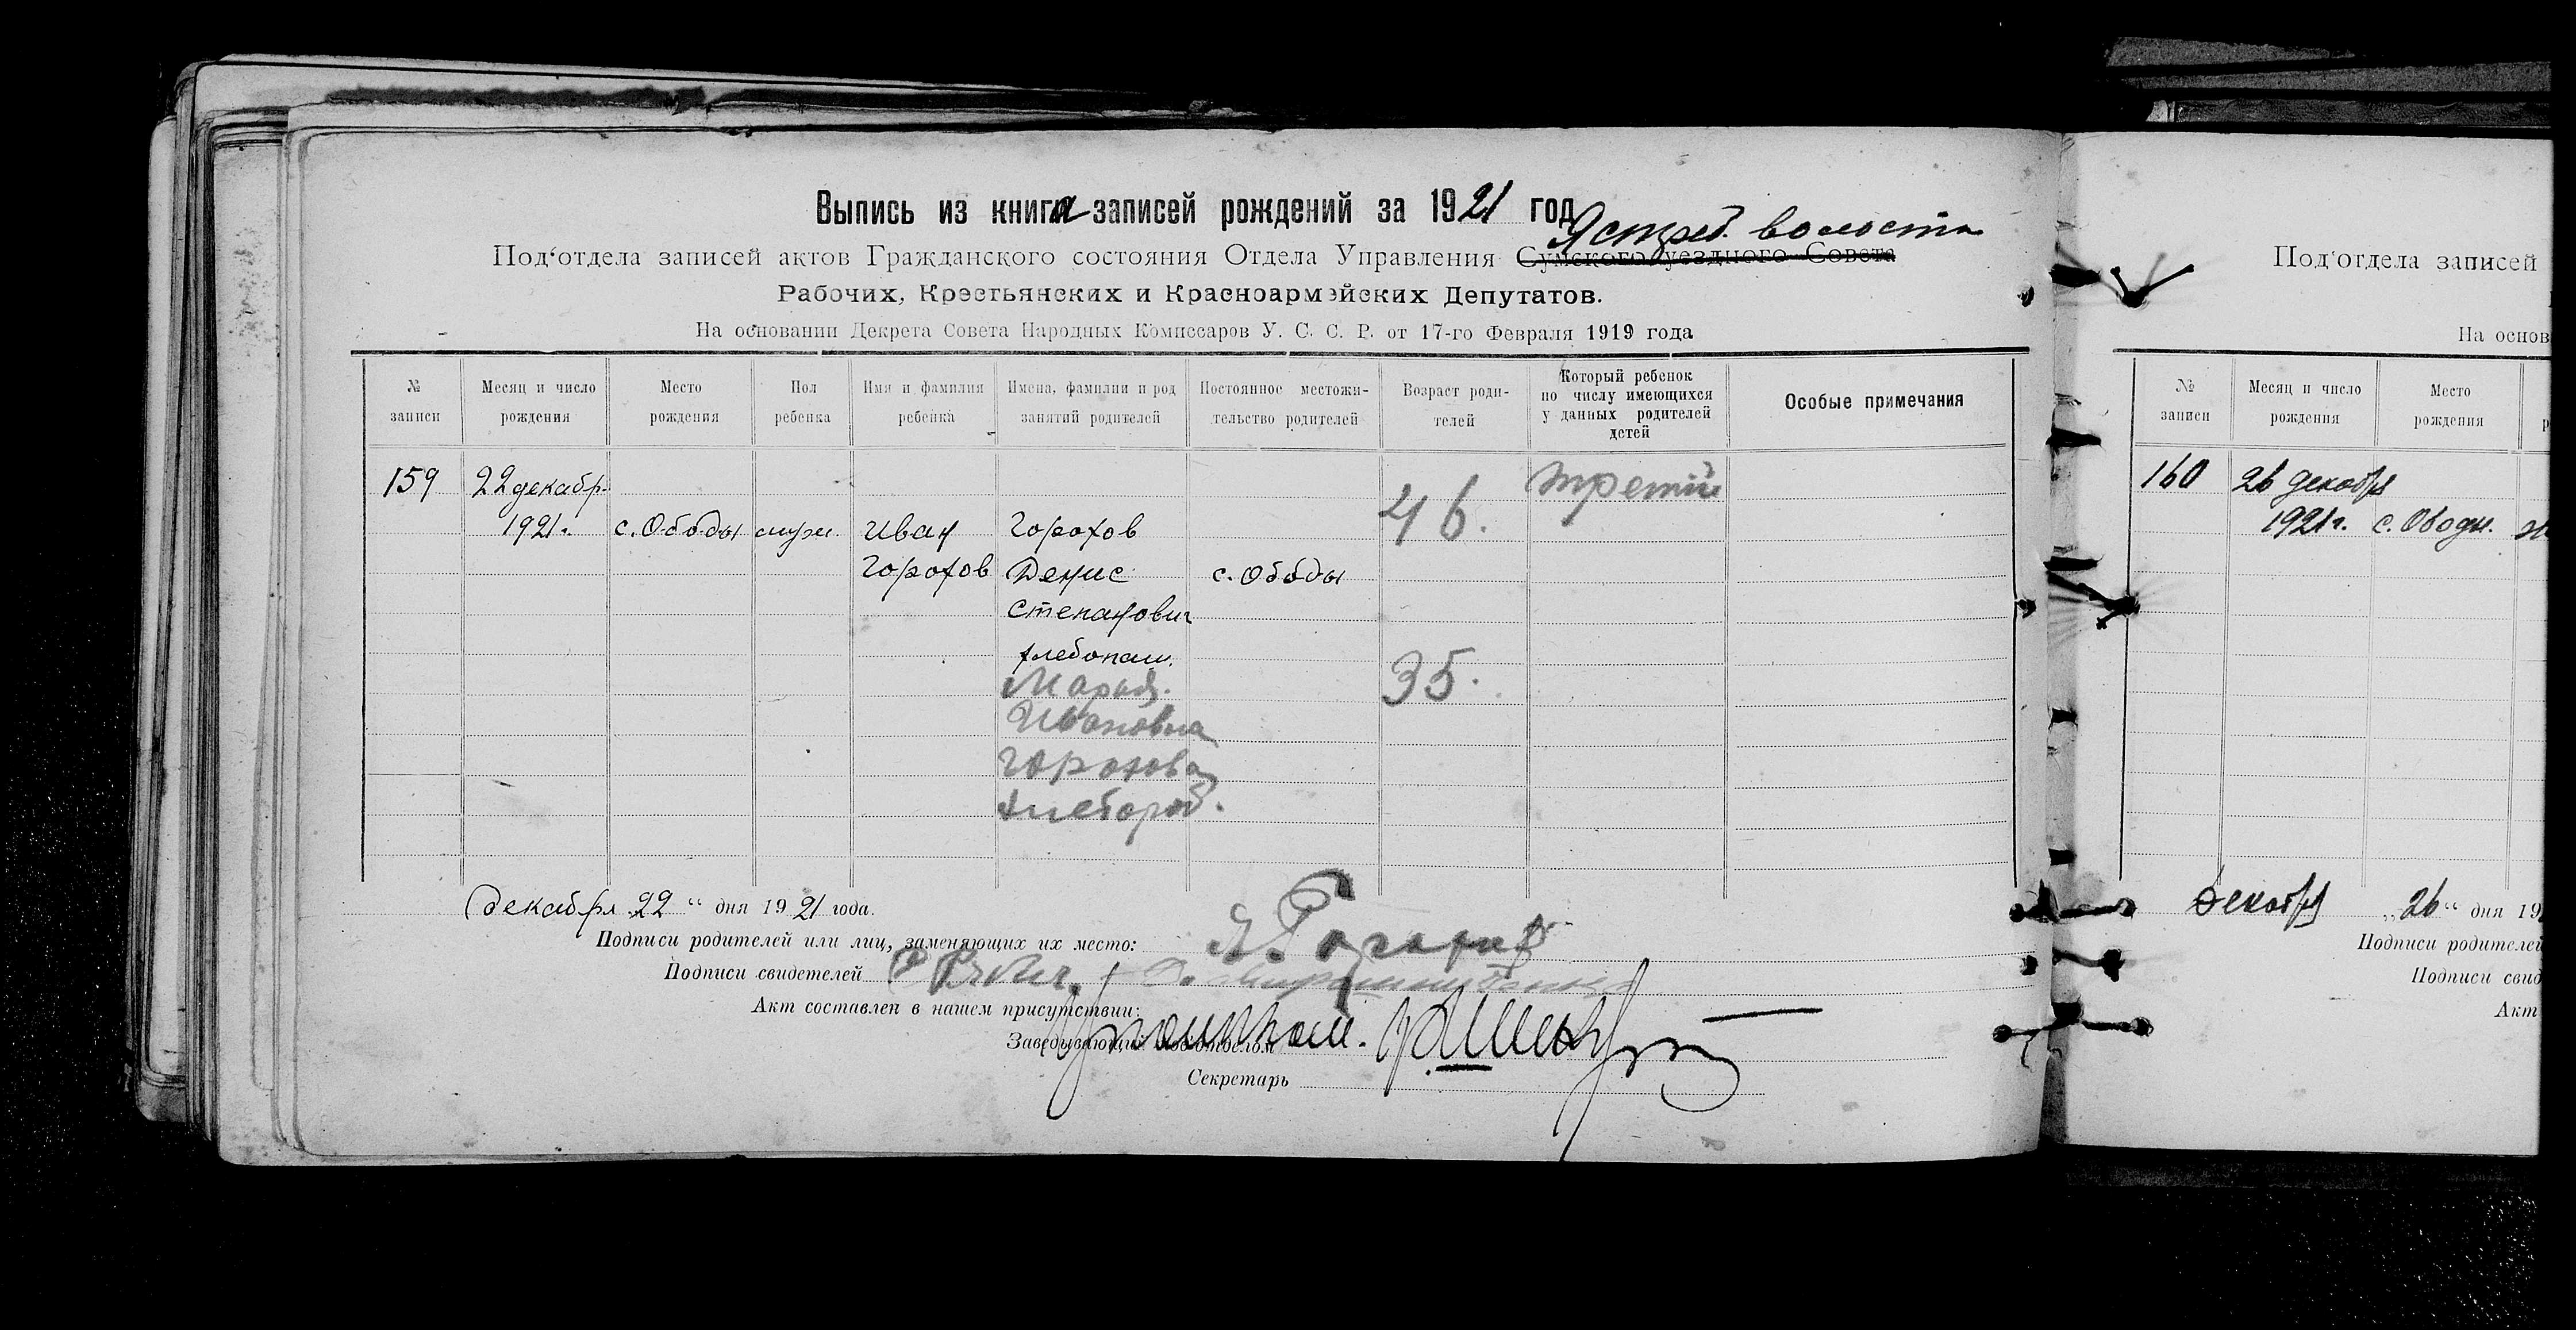 Выпись из книга записей рождений за 1921 год
Ястреб. волости
Под'отдела записей актов Гражданского состояния Отдела Управления Сумского уездного Совета
Рабочих, Крестьянских и Красноармейских Депутатов.
На основании Декрета Совета Народных Комиссаров У. С. С. Р. от 17-го Февраля 1919 года
№ записи | Месяц и число рождения | Место рождения | Пол ребенка | Имя и фамилия ребенка | Имена, фамилии и род занятий родителей | Постоянное местожительство родителей | Возраст родителей | Который ребенок по числу имеющихся у данных родителей детей | Особые примечания
159 22 декабр. 46. третий
1921 г. с. Ободы муж. Иван Горохов
Горохов Денис с. Ободы
Степанович
хлебопаш. 35.
Мария
Ивановна
Горохова
хлебороб.
декабря 22 " дня 1921 года.
Подписи родителей или лиц, заменяющих их место:
Подписи свидетелей
Акт составлен в нашем присутствии:
Заведывающий под'отделом
Секретарь
Под'отдела записей
На основ
№ записи | Месяц и число рождения | Место рождения
160 26 декабря
1921 г. с. Ободы.
Декабря „26" дня 19
Подписи родителей
Подписи свид
Акт